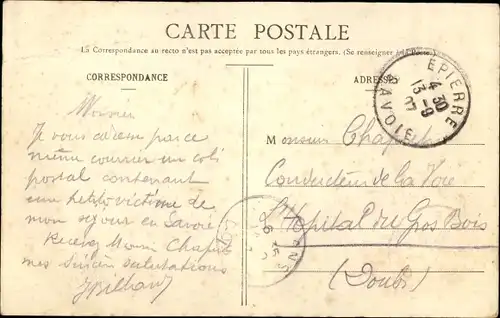 CARTE POSTALE
La Correspondance au recto n'est pas acceptée par tous les pays étrangers. (Se renseigner à la Poste)
CORRESPONDANCE
ADRESSE
EPIERRE
4 30
13 -9
SAVOIE
Monsieur
Je vous adresse par ce
même courrier un coli
postal contenant
une petite victime de
mon séjour en Savoie
Recevez Monsieur Chapuis
mes sincères salutations
Monsieur Chapuis
Conducteur de la Voie
L'Hopital du Gros Bois
(Doubs)